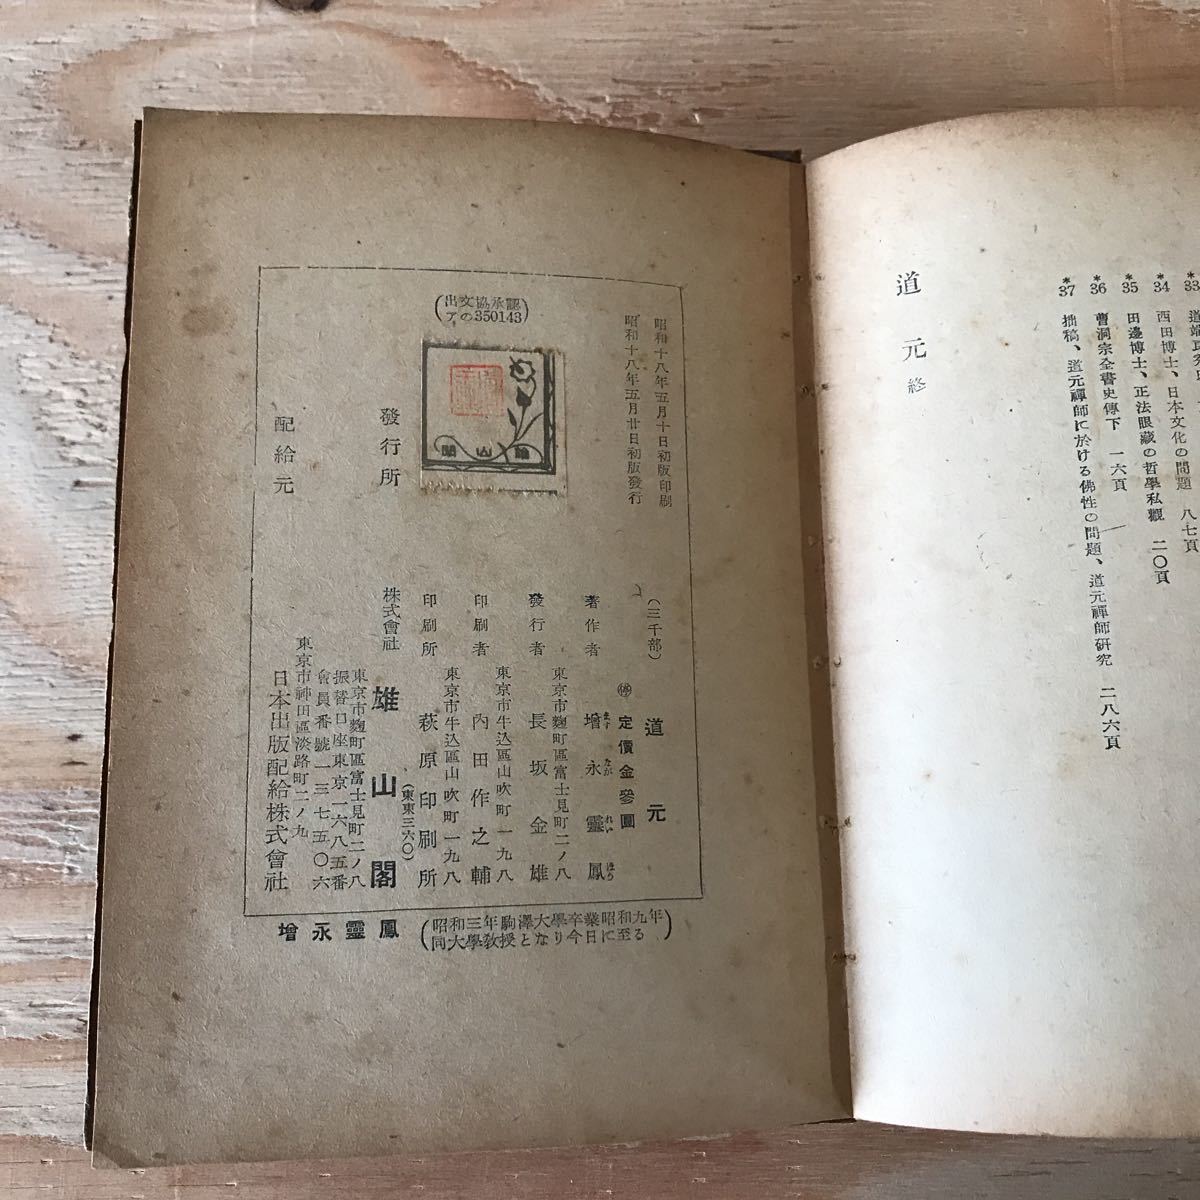 西田博士、日本文化の問題 八七頁
*34
田邊博士、正法眼藏の哲學私觀 二〇頁
*35
曹洞宗全書史傳下 一六頁
*36
拙稿、道元禪師に於ける佛性の問題、道元禪師研究 二八六頁
*37
道元 終
昭和十八年五月十日初版印刷
昭和十八年五月廿日初版發行
(出文協承認
アの350143)
(三千部)
道元
定價金參圓
著作者 增永靈鳳
ます なが れい ほう
東京市麴町區富士見町二ノ八
發行者 長坂金雄
東京市牛込區山吹町一九八
印刷者 內田作之輔
東京市牛込區山吹町一九八
印刷所 萩原印刷所
(東東三六〇)
發行所 株式會社 雄山閣
東京市麴町區富士見町二ノ八
振替口座東京一六八五番
會員番號一三七五〇六
東京市神田區淡路町二ノ九
配給元 日本出版配給株式會社
增永靈鳳
(昭和三年駒澤大學卒業昭和九年
同大學教授となり今日に至る)